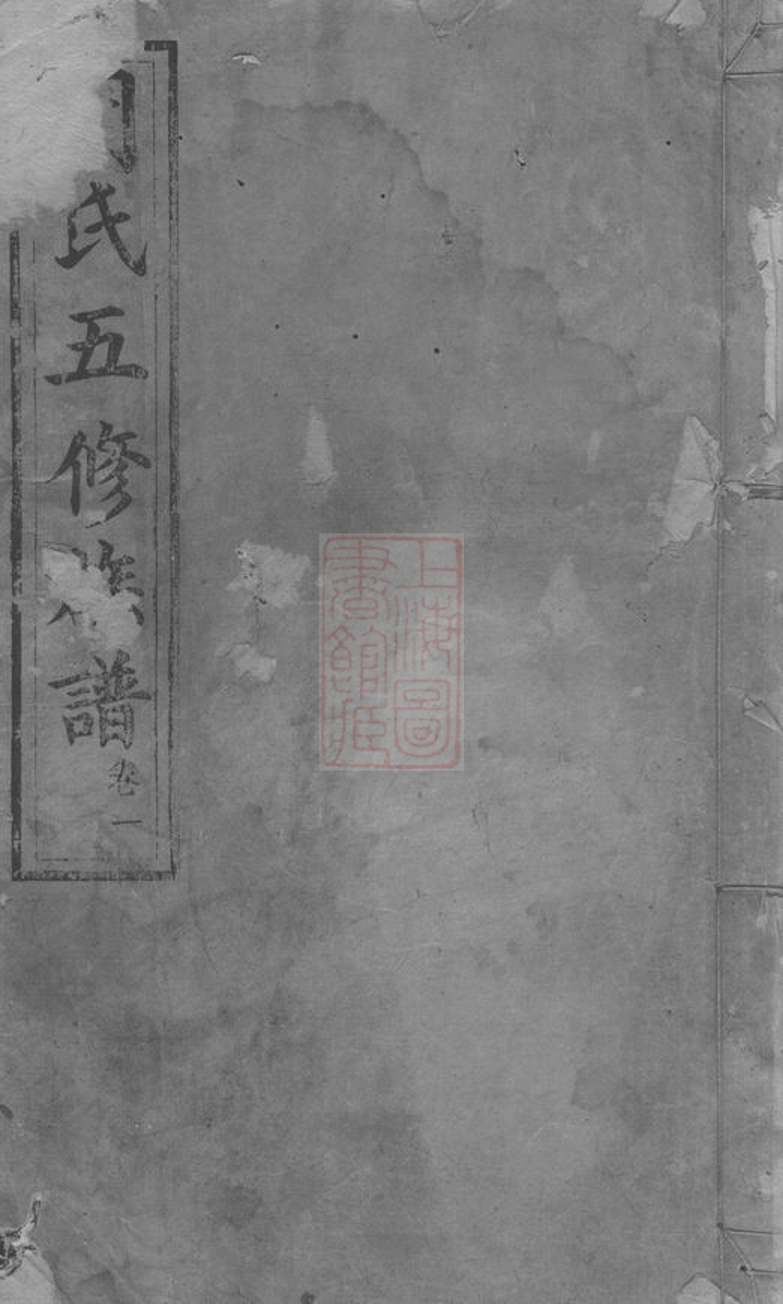 氏五修族譜
卷一
上海圖
書館藏